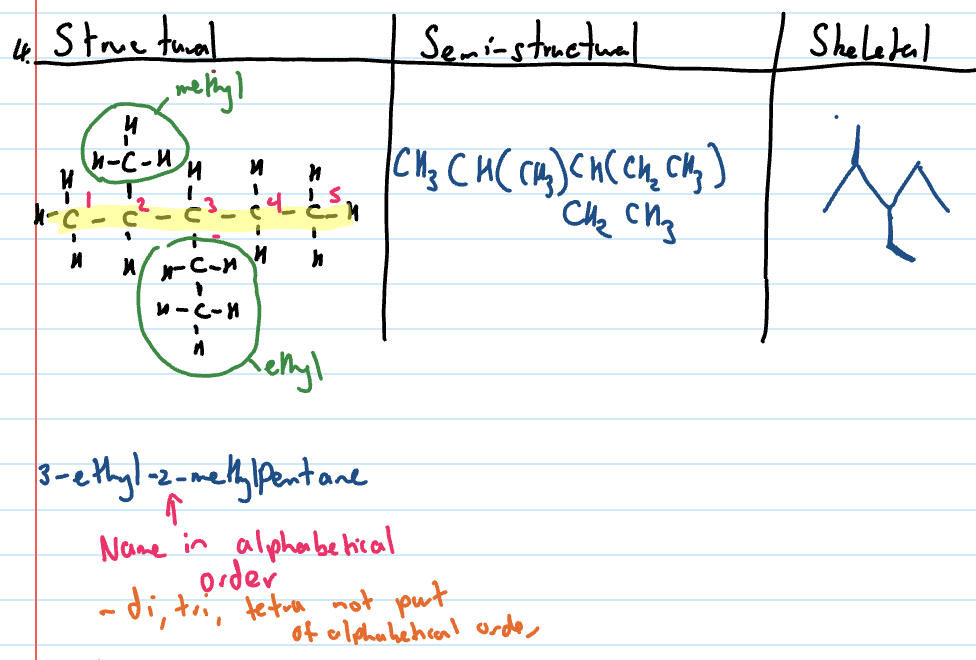 4. Structural Semi-structural Skeletal
methyl
H
H-C-H
H H H H
1 2 3 4 5
H-C-C-C-C-C-H
H H H-C-H H H
H-C-H
H
ethyl
CH3CH(CH3)CH(CH2CH3)
CH2CH3
3-ethyl-2-methylpentane
Name in alphabetical
order
- di, tri, tetra not part
of alphabetical order